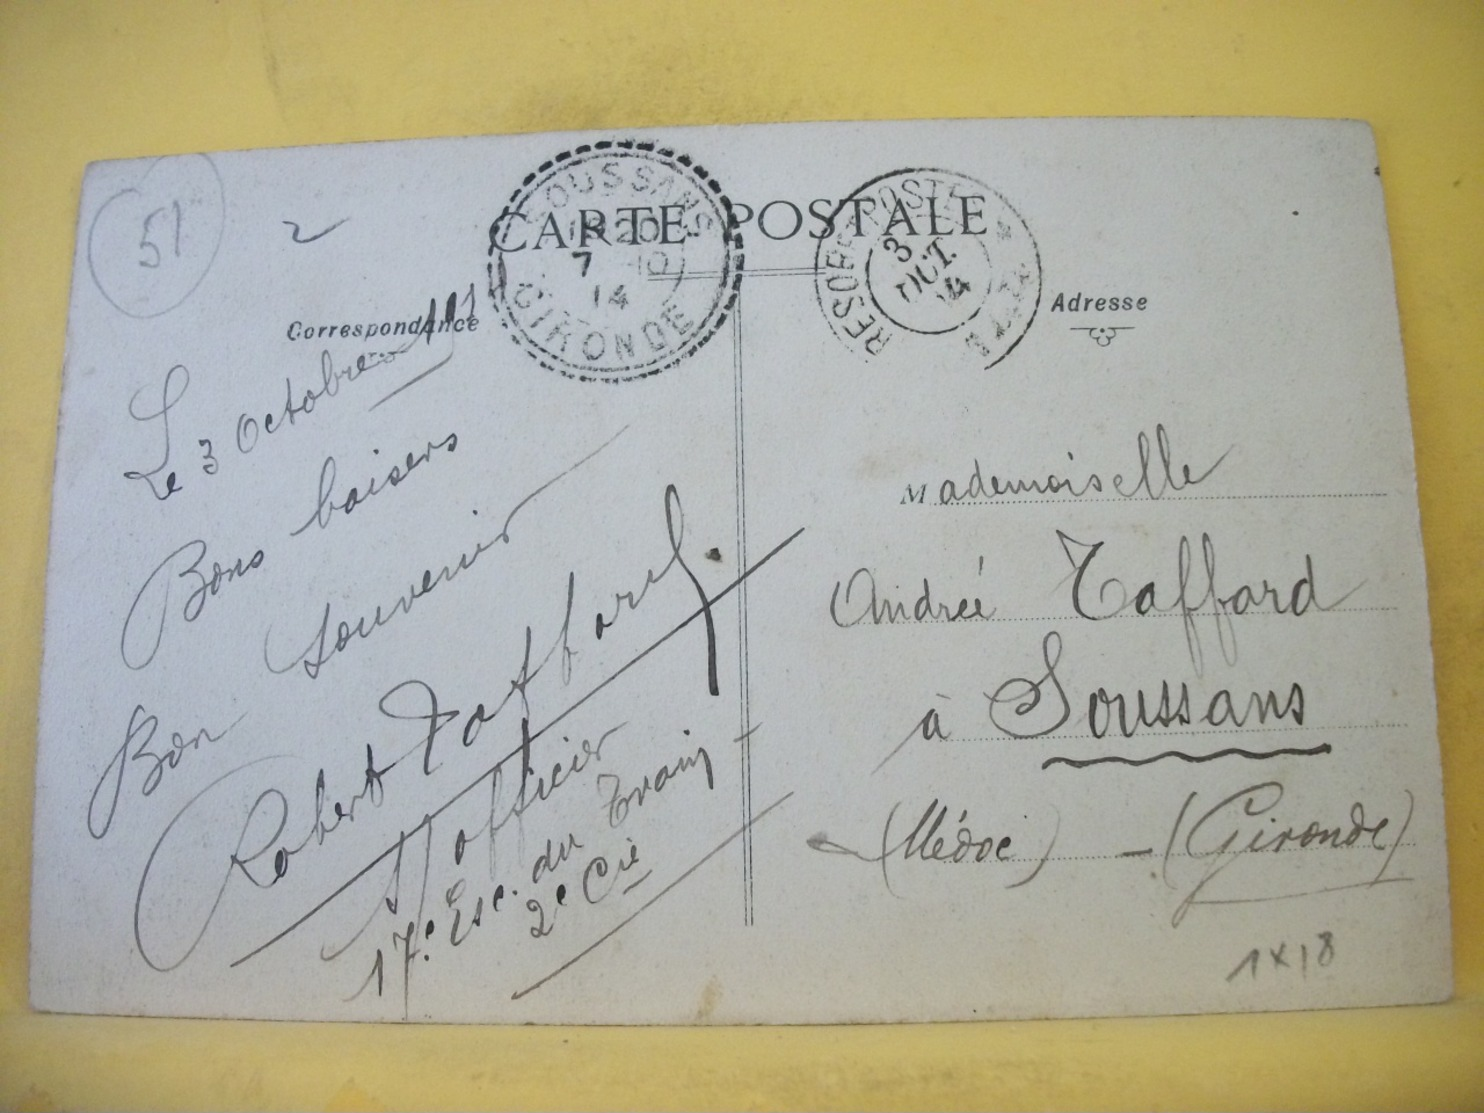 51
2
CARTE POSTALE
SOUSSANS
7 10
14
GIRONDE
3
OCT.
14
Correspondance
Adresse
Le 3 Octobre 1914
Bons baisers
Bon souvenir
Robert Taffard
S/officier
17e. Esc. du Train
2e Cie
Mademoiselle
Andrée Taffard
à Soussans
(Médoc) - (Gironde)
1x18